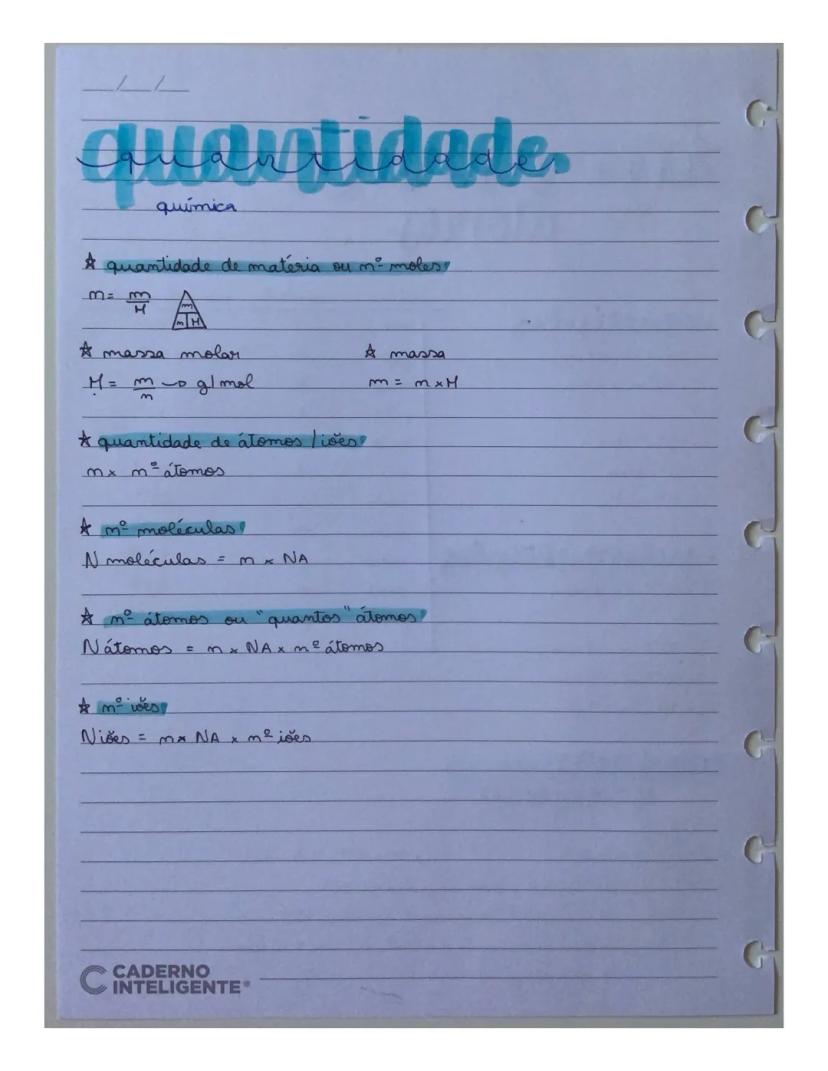 __/__/__
quantidade
quantidade
química
☆ quantidade de matéria ou nº moles
n = m/M
m
n M
☆ massa molar ☆ massa
M = m/n → g/mol m = n x M
☆ quantidade de átomos / iões
n x nº átomos
☆ nº moléculas
N moléculas = n x NA
☆ nº átomos ou "quantos" átomos
N átomos = n x NA x nº átomos
☆ nº iões
N iões = n x NA x nº iões
CADERNO
INTELIGENTE®